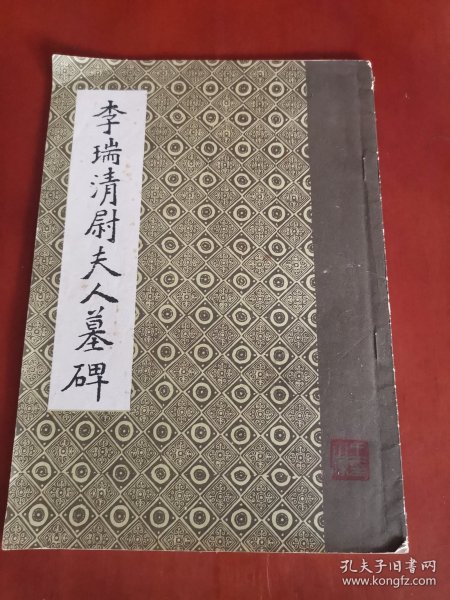 李瑞清尉夫人墓碑
孔夫子旧书网
www.kongfz.com